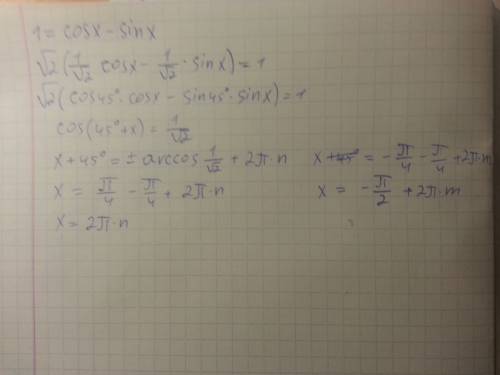 1 = cosx - sinx
√2(1/√2 cosx - 1/√2 · sinx) = 1
√2(cos45° · cosx - sin45° · sinx) = 1
cos(45° + x) = 1/√2
x + 45° = ± arccos 1/√2 + 2π · n
x = π/4 - π/4 + 2π · n
x = 2π · n
x + 45° = - π/4 - π/4 + 2π · n
x = - π/2 + 2π · m